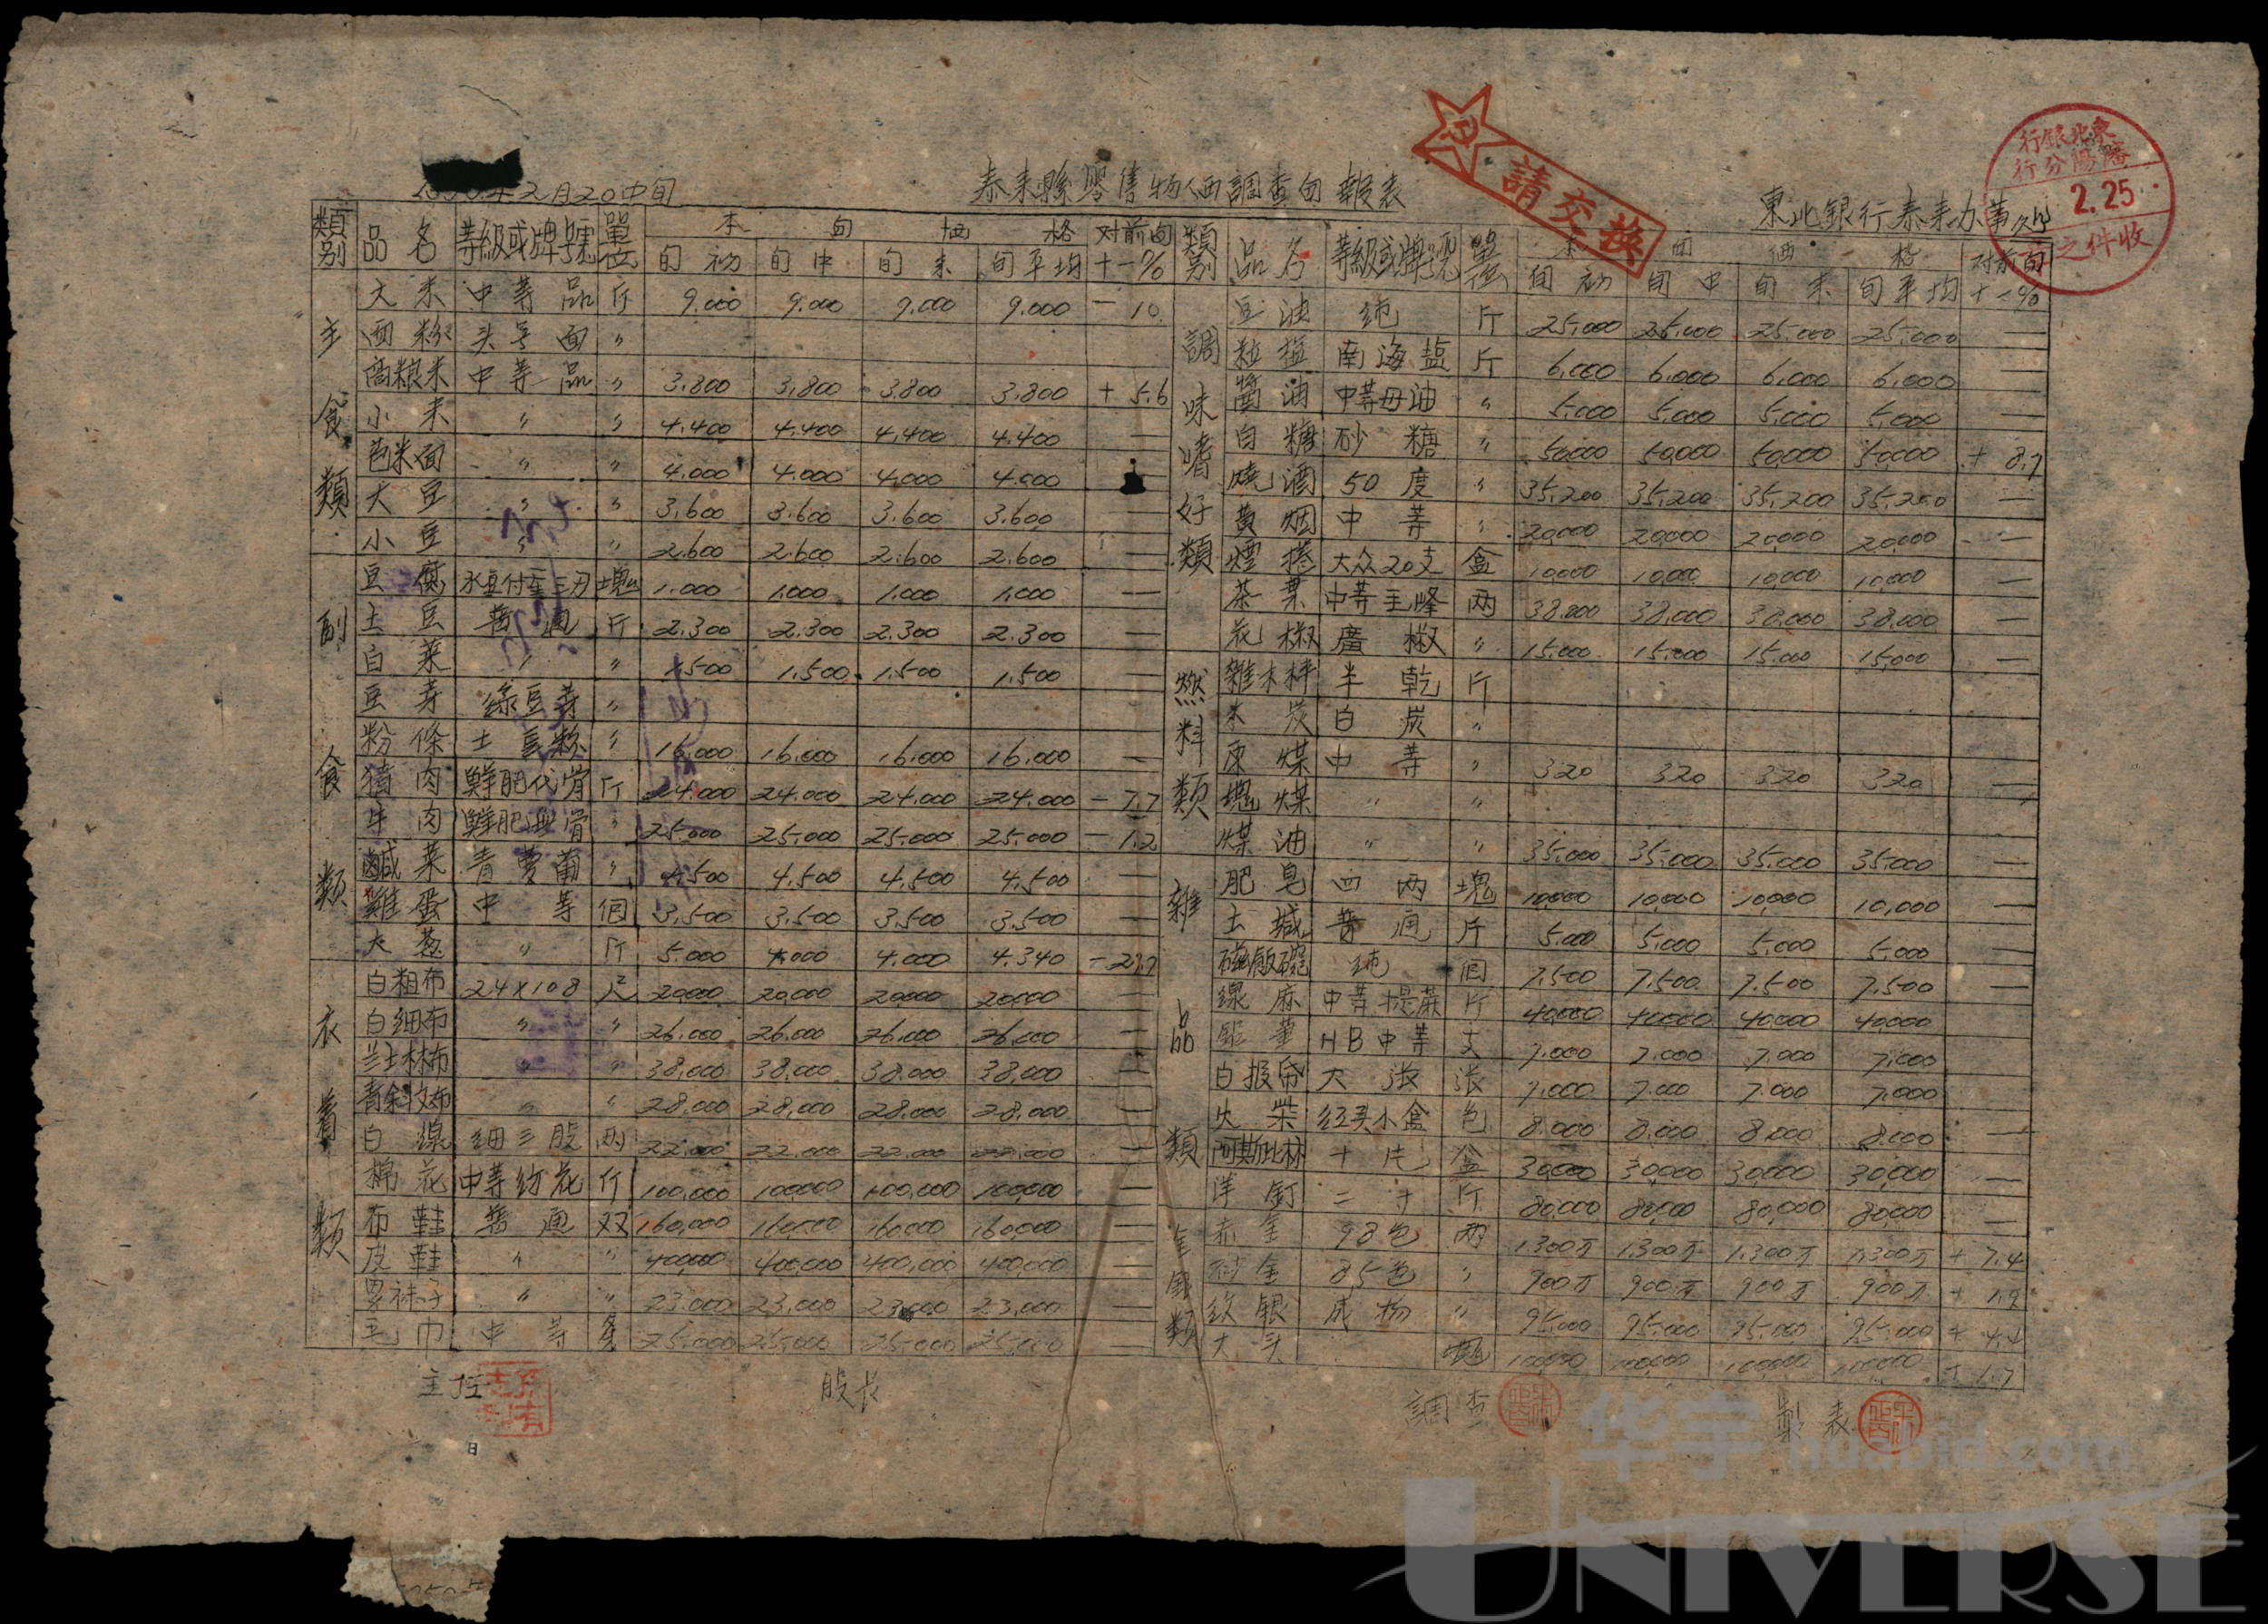 1950年2月20中旬
泰来縣零售物価調查旬報表
請交換
東北銀行泰来办事処
東北銀行
瀋陽分行
2.25
收件之章
類别 品名 等級或牌号 單位 本旬価格 对前旬
旬初 旬中 旬末 旬平均 +-%
主食類
大米 中等品 斤 9.000 9.000 9.000 9.000 -10
面粉 头号面 〃
高粮米 中等品 〃 3.800 3.800 3.800 3.800 +5.6
小米 〃 〃 4.400 4.400 4.400 4.400 —
苞米面 〃 〃 4.000 4.000 4.000 4.000
大豆 〃 〃 3.600 3.600 3.600 3.600 —
小豆 〃 〃 2.600 2.600 2.600 2.600 —
副食類
豆腐 水豆付 塊 1.000 1.000 1.000 1.000 —
土豆 普通 斤 2.300 2.300 2.300 2.300 —
白菜 〃 〃 1.500 1.500 1.500 1.500 —
豆芽 綠豆芽 〃
粉條 土豆粉 〃 16.000 16.000 16.000 16.000 —
猪肉 鮮肥代骨 斤 24.000 24.000 24.000 24.000 -7.7
牛肉 鮮肥無骨 〃 25.000 25.000 25.000 25.000 -1.2
鹹菜 青蘿蔔 〃 4.500 4.500 4.500 4.500 —
雞蛋 中等 個 3.500 3.500 3.500 3.500 —
大葱 〃 斤 5.000 4.000 4.000 4.340
衣着類
白粗布 24×108 尺 20.000 20.000 20.000 20.000 —
白细布 〃 〃 26.000 26.000 26.000 26.000 —
兰士林布 〃 〃 38.000 38.000 38.000 38.000 —
青斜文布 〃 〃 28.000 28.000 28.000 28.000 —
白線 细三股 两 22.000 22.000 22.000 22.000 —
棉花 中等纺花 斤 100.000 100.000 100.000 100.000 —
布鞋 普通 双 160.000 160.000 160.000 160.000 —
皮鞋 〃 〃 400.000 400.000 400.000 400.000 —
男袜子 〃 〃 23.000 23.000 23.000 23.000 —
毛巾 中等 条 25.000 25.000 25.000 25.000 —
類别 品名 等級或牌号 單位 本旬価格 对前旬
旬初 旬中 旬末 旬平均 +-%
調味嗜好類
豆油 纯 斤 25.000 25.000 25.000 25.000 —
粒塩 南海塩 斤 6.000 6.000 6.000 6.000 —
醬油 中等母油 〃 5.000 5.000 5.000 5.000 —
白糖 砂糖 〃 50.000 50.000 50.000 50.000 +8.7
燒酒 50度 〃 35.200 35.200 35.200 35.200 —
黄烟 中等 〃 20.000 20.000 20.000 20.000 —
煙捲 大众20支 盒 10.000 10.000 10.000 10.000 —
茶葉 中等 两 38.000 38.000 38.000 38.000 —
花椒 廣椒 〃 15.000 15.000 15.000 15.000 —
燃料類
雜木柈 半乾 斤
木炭 白炭 〃
原煤 中等 〃 320 320 320 320 —
塊煤 〃 〃
煤油 〃 〃 35.000 35.000 35.000 35.000 —
雜品類
肥皂 四两 塊 10.000 10.000 10.000 10.000 —
土堿 普通 斤 5.000 5.000 5.000 5.000 —
磁飯碗 纯 個 7.500 7.500 7.500 7.500 —
線麻 中等 斤 40.000 40.000 40.000 40.000 —
鉛筆 HB中等 支 7.000 7.000 7.000 7.000 —
白报帋 大張 張 7.000 7.000 7.000 7.000 —
火柴 红头小盒 包 8.000 8.000 8.000 8.000 —
阿斯比林 十片 盒 30.000 30.000 30.000 30.000 —
洋釘 二寸 斤 80.000 80.000 80.000 80.000 —
金銀類
赤金 98色 两 1.300万 1.300万 1.300万 1.300万 +7.4
砂金 85色 〃 900万 900万 900万 900万
纹銀 成份 〃 95.000 95.000 95.000 95.000 +4.4
大头 塊 100.000 100.000 100.000 100.000 +1.7
主任 股长 調查 製表
华宇 huabid.com
UNIVERSE